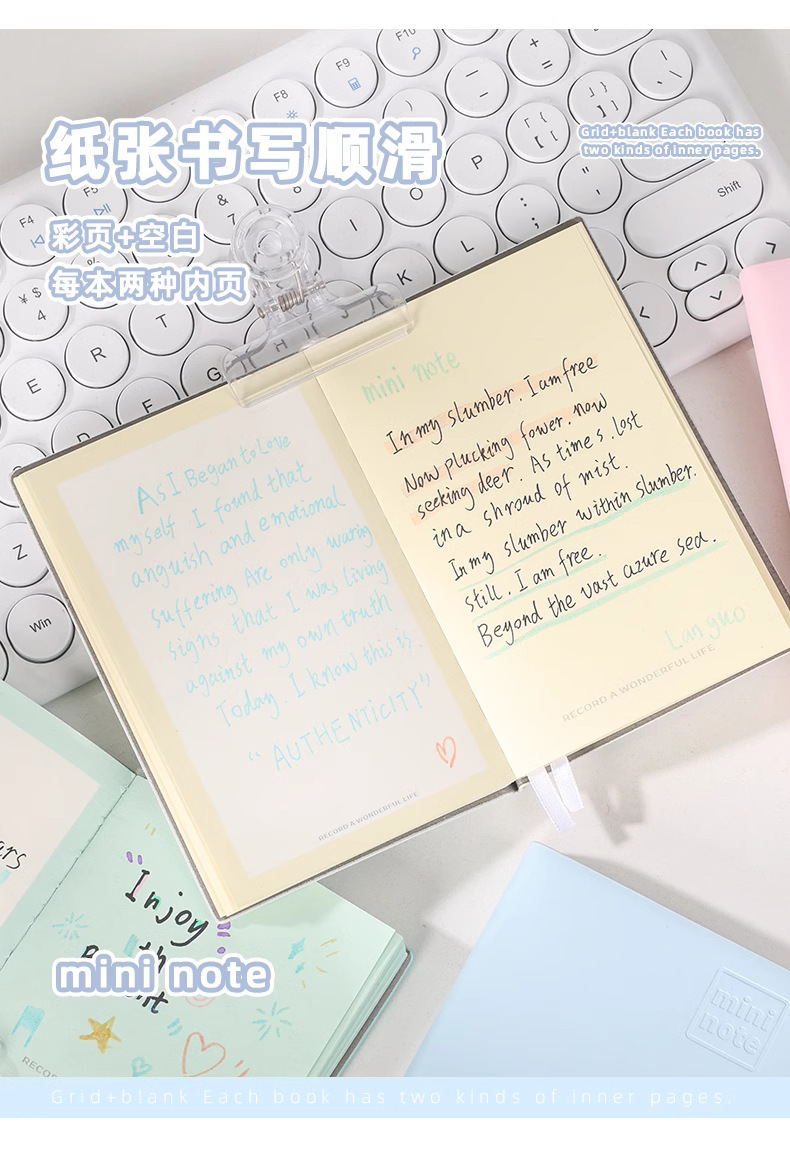 纸张书写顺滑
Grid+blank Each book has
two kinds of inner pages.
彩页+空白
每本两种内页
F10
F9
F8
F5
F4
&
7
¥ $
4
P
O
I
L
K
T
R
E
D
F
Z
Win
Shift
mini note
In my slumber. I am free
Now plucking fower. now
seeking deer. As times. lost
in a shroud of mist.
In my slumber within slumber.
still. I am free.
Beyond the vast azure sea.
Lan guo
RECORD A WONDERFUL LIFE
As I Began to Love
myself I found that
anguish and emotional
suffering Are only waring
signs that I was living
against my own truth
Today. I know this is.
“AUTHENTICITY”
RECORD A WONDERFUL LIFE
Injoy
mini note
mini
note
Grid+blank Each book has two kinds of inner pages.